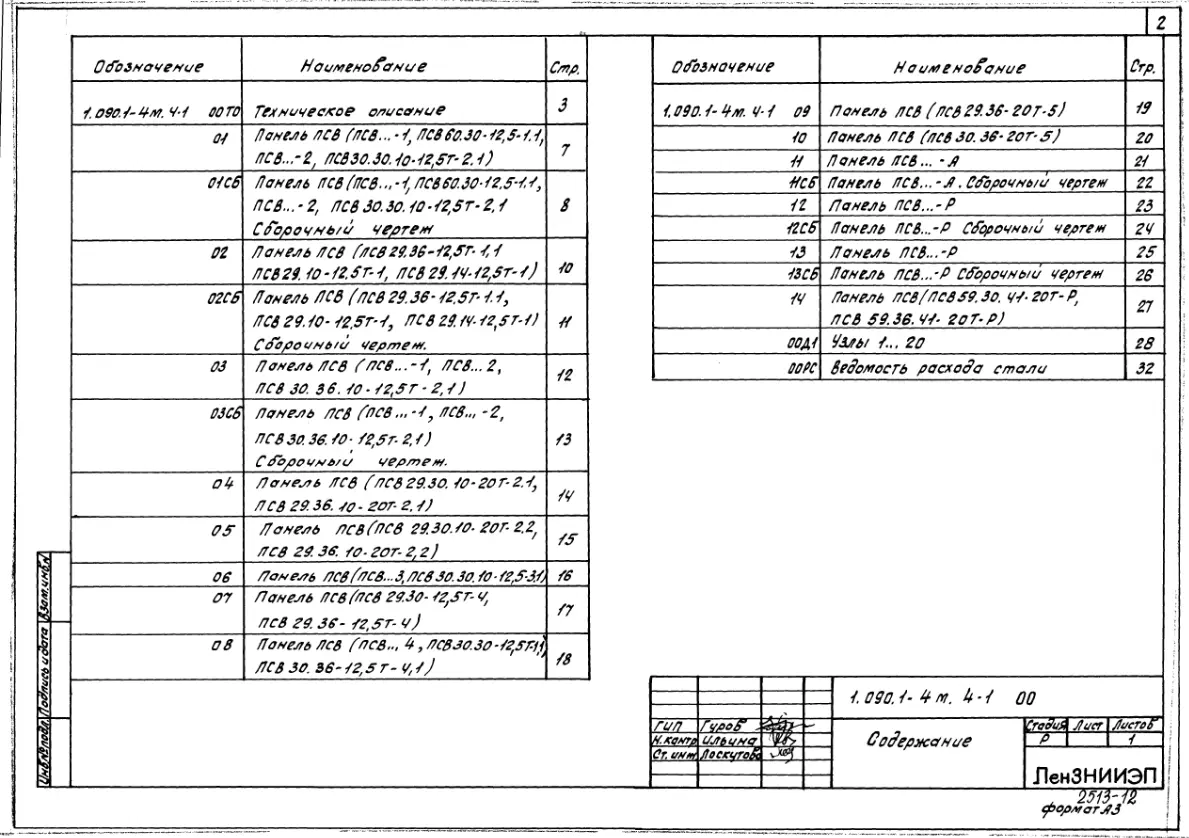 2
Обозначение Наименование Стр.
1.090.1-4т. 4-1 00ТО Техническое описание 3
01 Панель ПСВ (ПСВ...-1, ПСВ60.30-12,5-1.1,
ПСВ...-2, ПСВ30.30.10-12,5Т-2.1) 7
01СБ Панель ПСВ (ПСВ...-1, ПСВ60.30-12.5-1.1,
ПСВ...-2, ПСВ30.30.10-12,5Т-2,1 8
Сборочный чертеж
02 Панель ПСВ (ПСВ29.36-12,5Т-1,1
ПСВ29.10-12.5Т-1, ПСВ29.14-12,5Т-1) 10
02СБ Панель ПСВ (ПСВ29.36-12,5Т-1.1,
ПСВ29.10-12,5Т-1, ПСВ29.14-12,5Т-1) 11
Сборочный чертеж.
03 Панель ПСВ (ПСВ...-1, ПСВ...2,
ПСВ 30.36.10-12,5Т-2,1) 12
03СБ Панель ПСВ (ПСВ...-1, ПСВ...-2,
ПСВ30.36.10-12,5Т-2,1) 13
Сборочный чертеж.
04 Панель ПСВ (ПСВ29.30.10-20Т-2.1,
ПСВ29.36.10-20Т-2,1) 14
05 Панель ПСВ (ПСВ 29.30.10-20Т-2.2,
ПСВ 29.36.10-20Т-2,2) 15
06 Панель ПСВ (ПСВ...3, ПСВ30.30.10-12,5-3.1) 16
07 Панель ПСВ (ПСВ 29.30-12,5Т-4,
ПСВ 29.36-12,5Т-4) 17
08 Панель ПСВ (ПСВ...4, ПСВ30.30-12,5Т-4,1)
ПСВ 30.36-12,5Т-4,1) 18
Обозначение Наименование Стр.
1.090.1-4т. 4-1 09 Панель ПСВ (ПСВ29.36-20Т-5) 19
10 Панель ПСВ (ПСВ30.36-20Т-5) 20
11 Панель ПСВ...-Л 21
11СБ Панель ПСВ...-Л. Сборочный чертеж 22
12 Панель ПСВ...-Р 23
12СБ Панель ПСВ...-Р Сборочный чертеж 24
13 Панель ПСВ...-Р 25
13СБ Панель ПСВ...-Р Сборочный чертеж 26
14 Панель ПСВ (ПСВ59.30.41-20Т-Р,
ПСВ 59.36.41-20Т-Р) 27
00Д1 Узлы 1...20 28
00РС Ведомость расхода стали 32
Инв.№подл. Подпись и дата Взам.инв.№
1.090.1-4т. 4-1 00
ГИП Гуров
Н.контр Ильина
Ст.инж Лоскутова
Содержание
Стадия Лист Листов
Р 1
ЛенЗНИИЭП
2513-12
формат А3